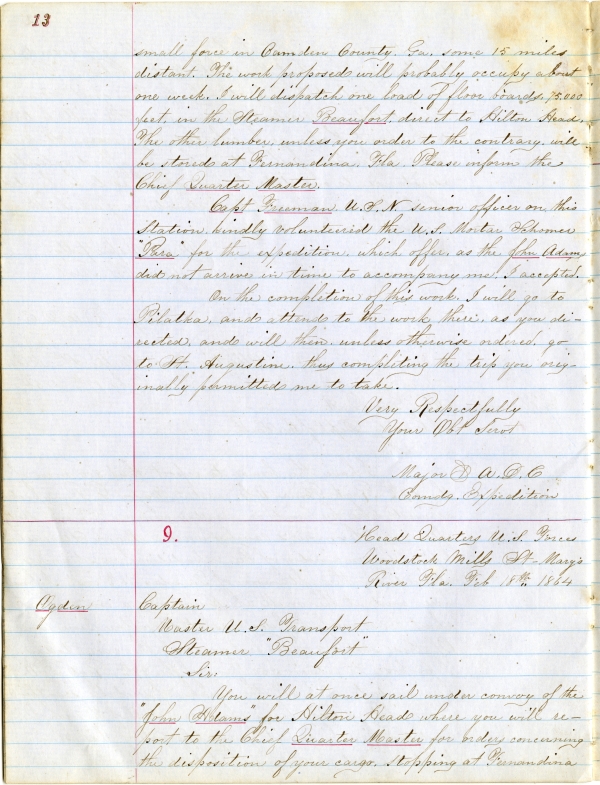 13
small force in Camden County, Ga. some 15 miles
distant. The work proposed will probably occupy about
one week. I will dispatch one load of floor boards, 75.000
feet, in the Steamer Beaufort, direct to Hilton Head.
The other lumber, unless you order to the contrary, will
be stored at Fernandina Fla. Please inform the
Chief Quarter Master.
Capt Freeman U.S.N senior officer on this
Station, kindly volunteered the U.S. Mortar Schooner
"Para" for the expedition, which offer, as the John Adams
did not arrive in time to accompany me, I accepted.
On the completion of this work, I will go to
Pilatka, and attend to the work there, as you di-
rected, and will then, unless otherwise ordered, go
to St. Augustine, thus completing the trip you orig-
inally permitted me to take.
Very Respectfully
Your Obt Servt
Major & A.D.C
Comdg. Expedition
9.
Head Quarters U.S. Forces
Woodstock Mills St-Mary's
River Fla. Feb 18th 1864
Ogden
Captain
Master U.S. Transport
Steamer "Beaufort"
Sir:
You will at once sail under convoy of the
"John Adams" for Hilton Head where you will re-
port to the Chief Quarter Master for orders concerning
the disposition of your cargo, stopping at Fernandina